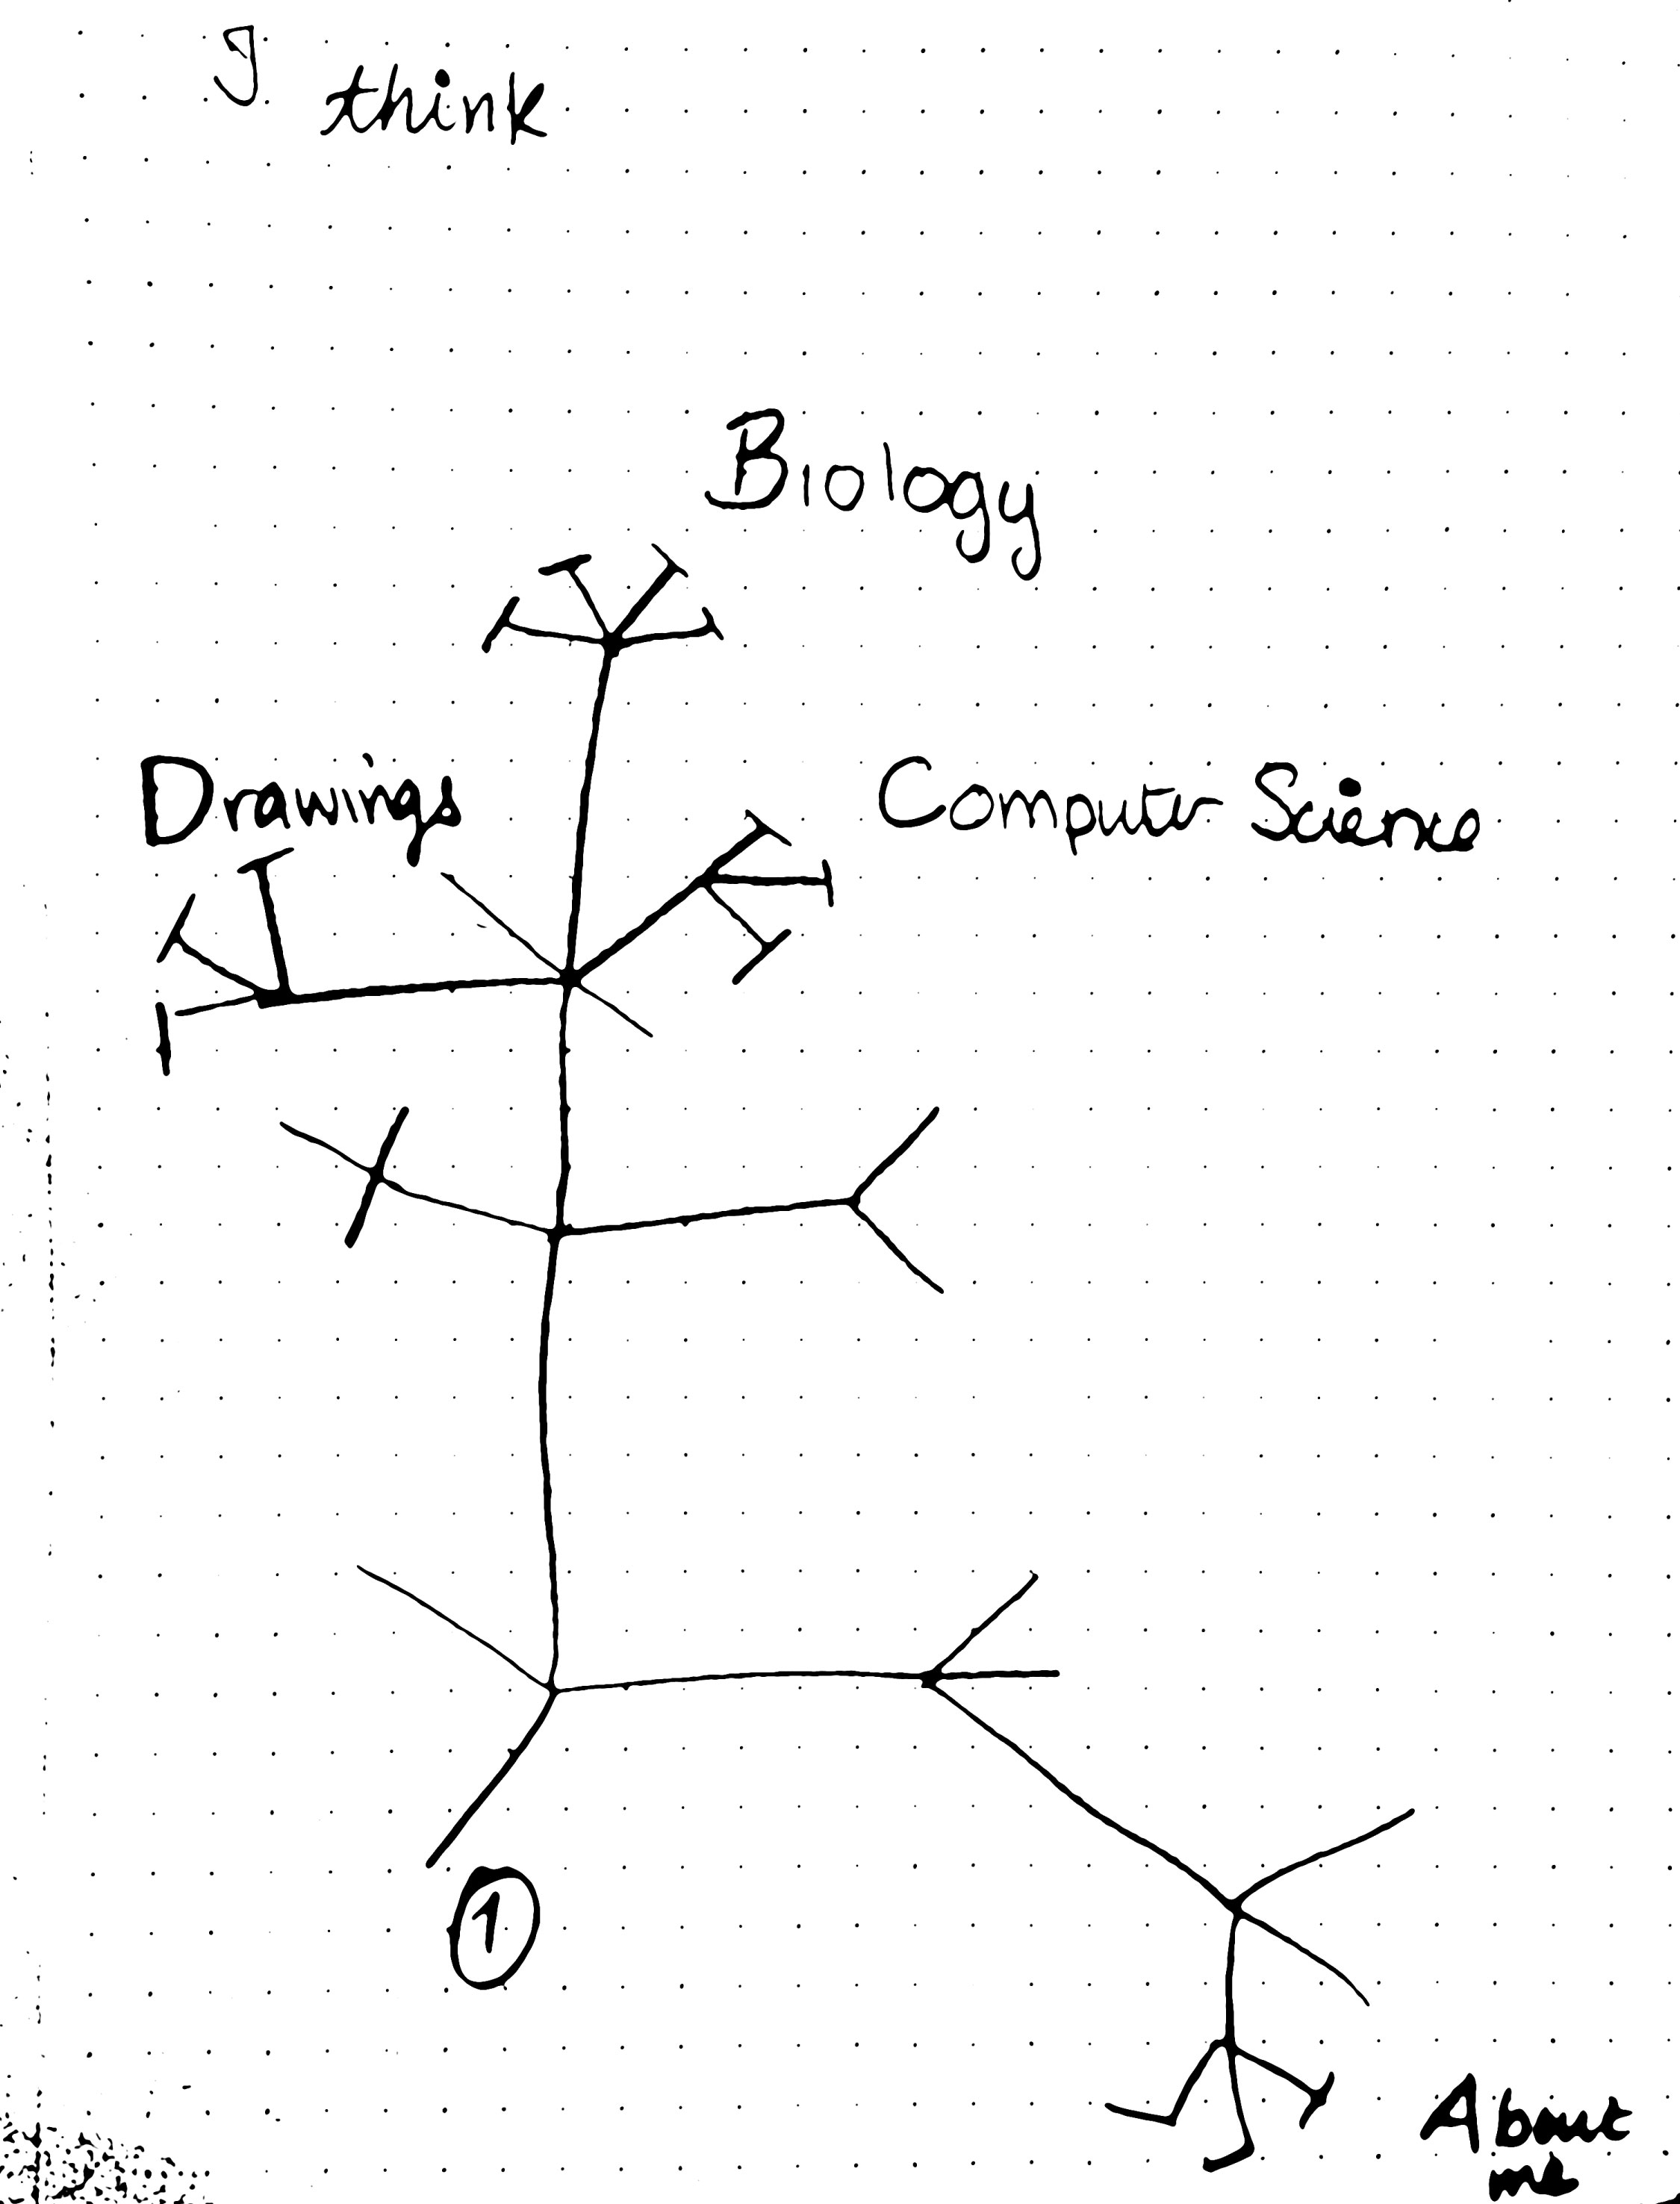 I
think
Biology
Drawings
Computer Science
1
About
me